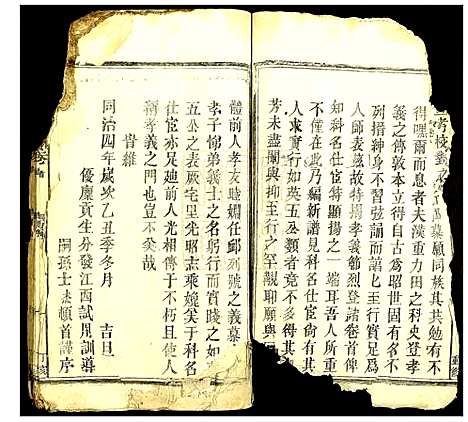 得嘿爾而息者夫漢重力田之科史登孝
義之傳敦本立得自古為昭世固有名不
列搢紳身不習弦誦而至行實足為
人師表慕故特揚孝義節烈登諸卷首俾
知科名仕宦特顯揚之一端耳吾人所重
尚不在此乃編新譜見科名仕宦
人求實行如英五公類者竟不多得其
芳未盡闡與抑至行之罕覯聊願與
體前人孝友睦婣任卹列號之義慕
孝子悌弟義士之名躬行而實踐之如
五公之表厥宅里先志乘婉矣于科名
仕宦亦足廸前人光相傳于不朽且使人
孝義之門也豈不矣哉
旹維
同治四年歲次乙丑季冬月　吉旦
優廩貢生分發江西試用訓導
嗣孫士　頓首謹序